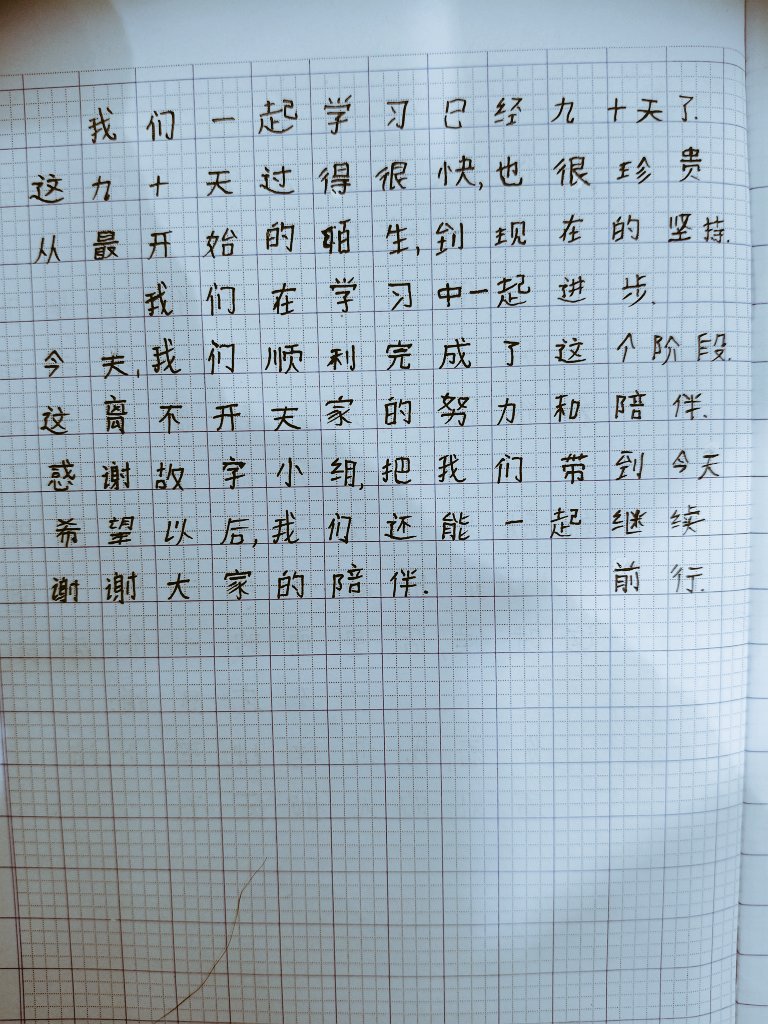 我们一起学习已经九十天了.
这九十天过得很快,也很珍贵
从最开始的陌生,到现在的坚持.
我们在学习中一起进步.
今天,我们顺利完成了这个阶段.
这离不开大家的努力和陪伴.
感谢故字小组,把我们带到今天
希望以后,我们还能一起继续
谢谢大家的陪伴. 前行.